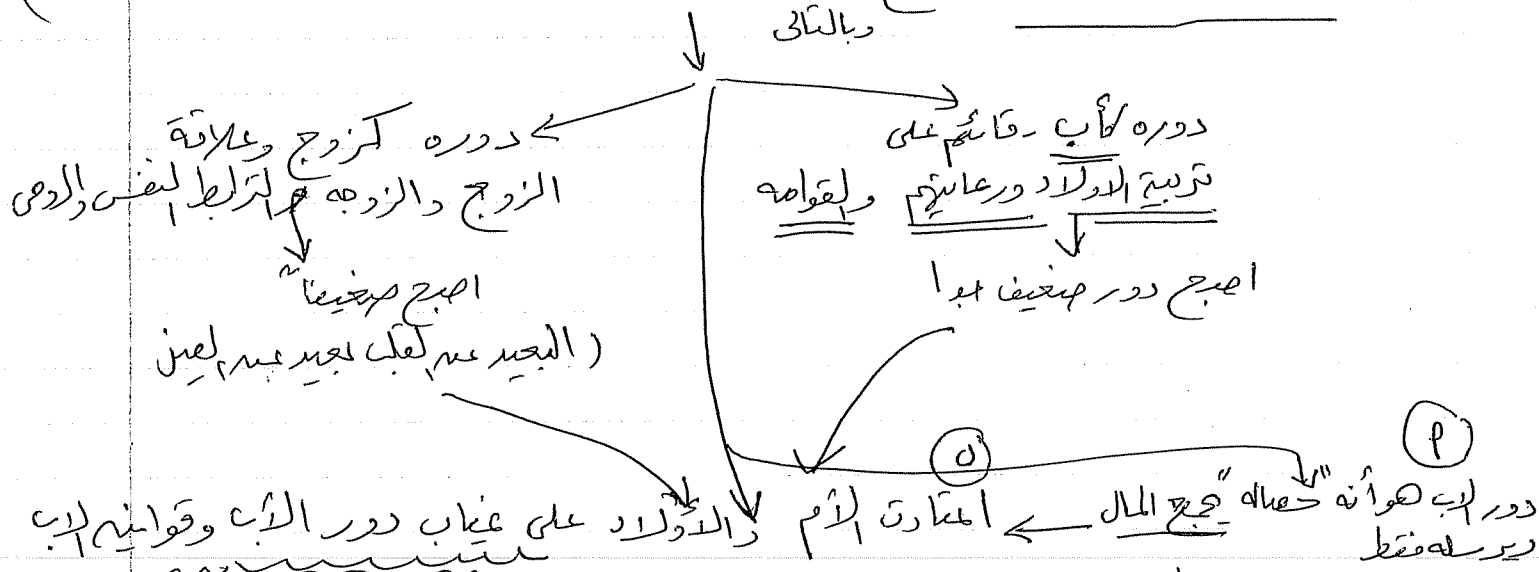 وبالتالى
دوره كأب وقائم على
تربية الاولاد ورعايتهم والقوامه
اصبح دور ضعيف جدا
دوره كزوج وعلاقة
الزوج والزوجه والترابط النفسى والروحى
اصبح ضعيفاً
(البعيد عن القلب بعيد عن العين
دور الاب هو أنه "حصاله" يجمع المال
ويرسله فقط
اعتادت الأم والأولاد على غياب دور الأب وقوانين الاب